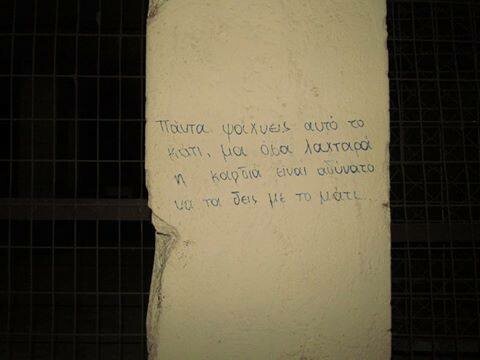 Πάντα ψάχνεις αυτό το
κάτι, μα όσα λαχταρά
η καρδιά είναι αδύνατο
να τα δεις με το μάτι...